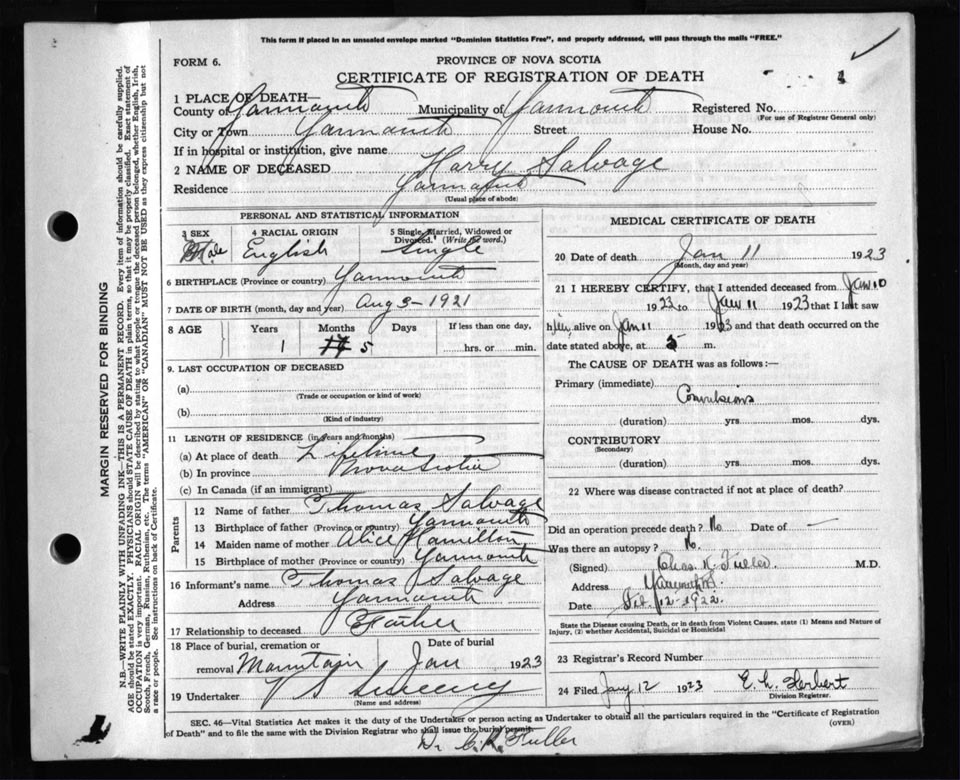 This form if placed in an unsealed envelope marked "Dominion Statistics Free", and properly addressed, will pass through the mails "FREE."
FORM 6.
PROVINCE OF NOVA SCOTIA
CERTIFICATE OF REGISTRATION OF DEATH
1 PLACE OF DEATH—
County of Yarmouth Municipality of Yarmouth Registered No.
(For use of Registrar General only)
City or Town Yarmouth Street House No.
If in hospital or institution, give name
2 NAME OF DECEASED Harry Salvage
Residence Yarmouth
(Usual place of abode)
PERSONAL AND STATISTICAL INFORMATION
3 SEX 4 RACIAL ORIGIN 5 Single, Married, Widowed or Divorced. (Write the word.)
Male English Single
6 BIRTHPLACE (Province or country) Yarmouth
7 DATE OF BIRTH (month, day and year) Aug 5-1921
8 AGE Years Months Days If less than one day,
1 5 hrs. or min.
9. LAST OCCUPATION OF DECEASED
(a)
(Trade or occupation or kind of work)
(b)
(Kind of industry)
11 LENGTH OF RESIDENCE (in years and months)
(a) At place of death Lifetime
(b) In province Nova Scotia
(c) In Canada (if an immigrant)
Parents
12 Name of father Thomas Salvage
13 Birthplace of father (Province or country) Yarmouth
14 Maiden name of mother Alice Hamilton
15 Birthplace of mother (Province or country) Yarmouth
16 Informant's name Thomas Salvage
Address Yarmouth
17 Relationship to deceased Father
18 Place of burial, cremation or Date of burial
removal Mountain Jan 1923
19 Undertaker V S Sweeny
(Name and address)
MEDICAL CERTIFICATE OF DEATH
20 Date of death Jan 11 1923
(Month, day and year)
21 I HEREBY CERTIFY, that I attended deceased from Jan 10
1923 to Jan 11 1923 that I last saw
him alive on Jan 11 1923 and that death occurred on the
date stated above, at 5 m.
The CAUSE OF DEATH was as follows:—
Primary (immediate)
Convulsions
(duration) yrs mos. dys.
CONTRIBUTORY
(Secondary)
(duration) yrs. mos. dys.
22 Where was disease contracted if not at place of death?
Did an operation precede death? No Date of —
Was there an autopsy? No.
(Signed) Chas. K. Fuller. M.D.
Address Yarmouth
Date 12-1922.
State the Disease causing Death, or in death from Violent Causes, state (1) Means and Nature of Injury, (2) whether Accidental, Suicidal or Homicidal
23 Registrar's Record Number
24 Filed Jany 12 1923 E. L. Herbert
Division Registrar.
SEC. 46—Vital Statistics Act makes it the duty of the Undertaker or person acting as Undertaker to obtain all the particulars required in the "Certificate of Registration
of Death" and to file the same with the Division Registrar who shall issue the burial permit. (OVER)
Dr C. K. Fuller
MARGIN RESERVED FOR BINDING
N.B.—WRITE PLAINLY WITH UNFADING INK—THIS IS A PERMANENT RECORD. Every item of information should be carefully supplied.
AGE should be stated EXACTLY. PHYSICIANS should STATE CAUSE OF DEATH in plain terms, so that it may be properly classified. Exact statement of
OCCUPATION is very important. RACIAL ORIGIN will be described by stating to what people or tongue the deceased person belonged, whether English, Irish,
Scotch, French, German, Russian, Ruthenian, etc. The terms "AMERICAN" or "CANADIAN" MUST NOT BE USED as they express citizenship but not
a race or people. See instructions on back of Certificate.